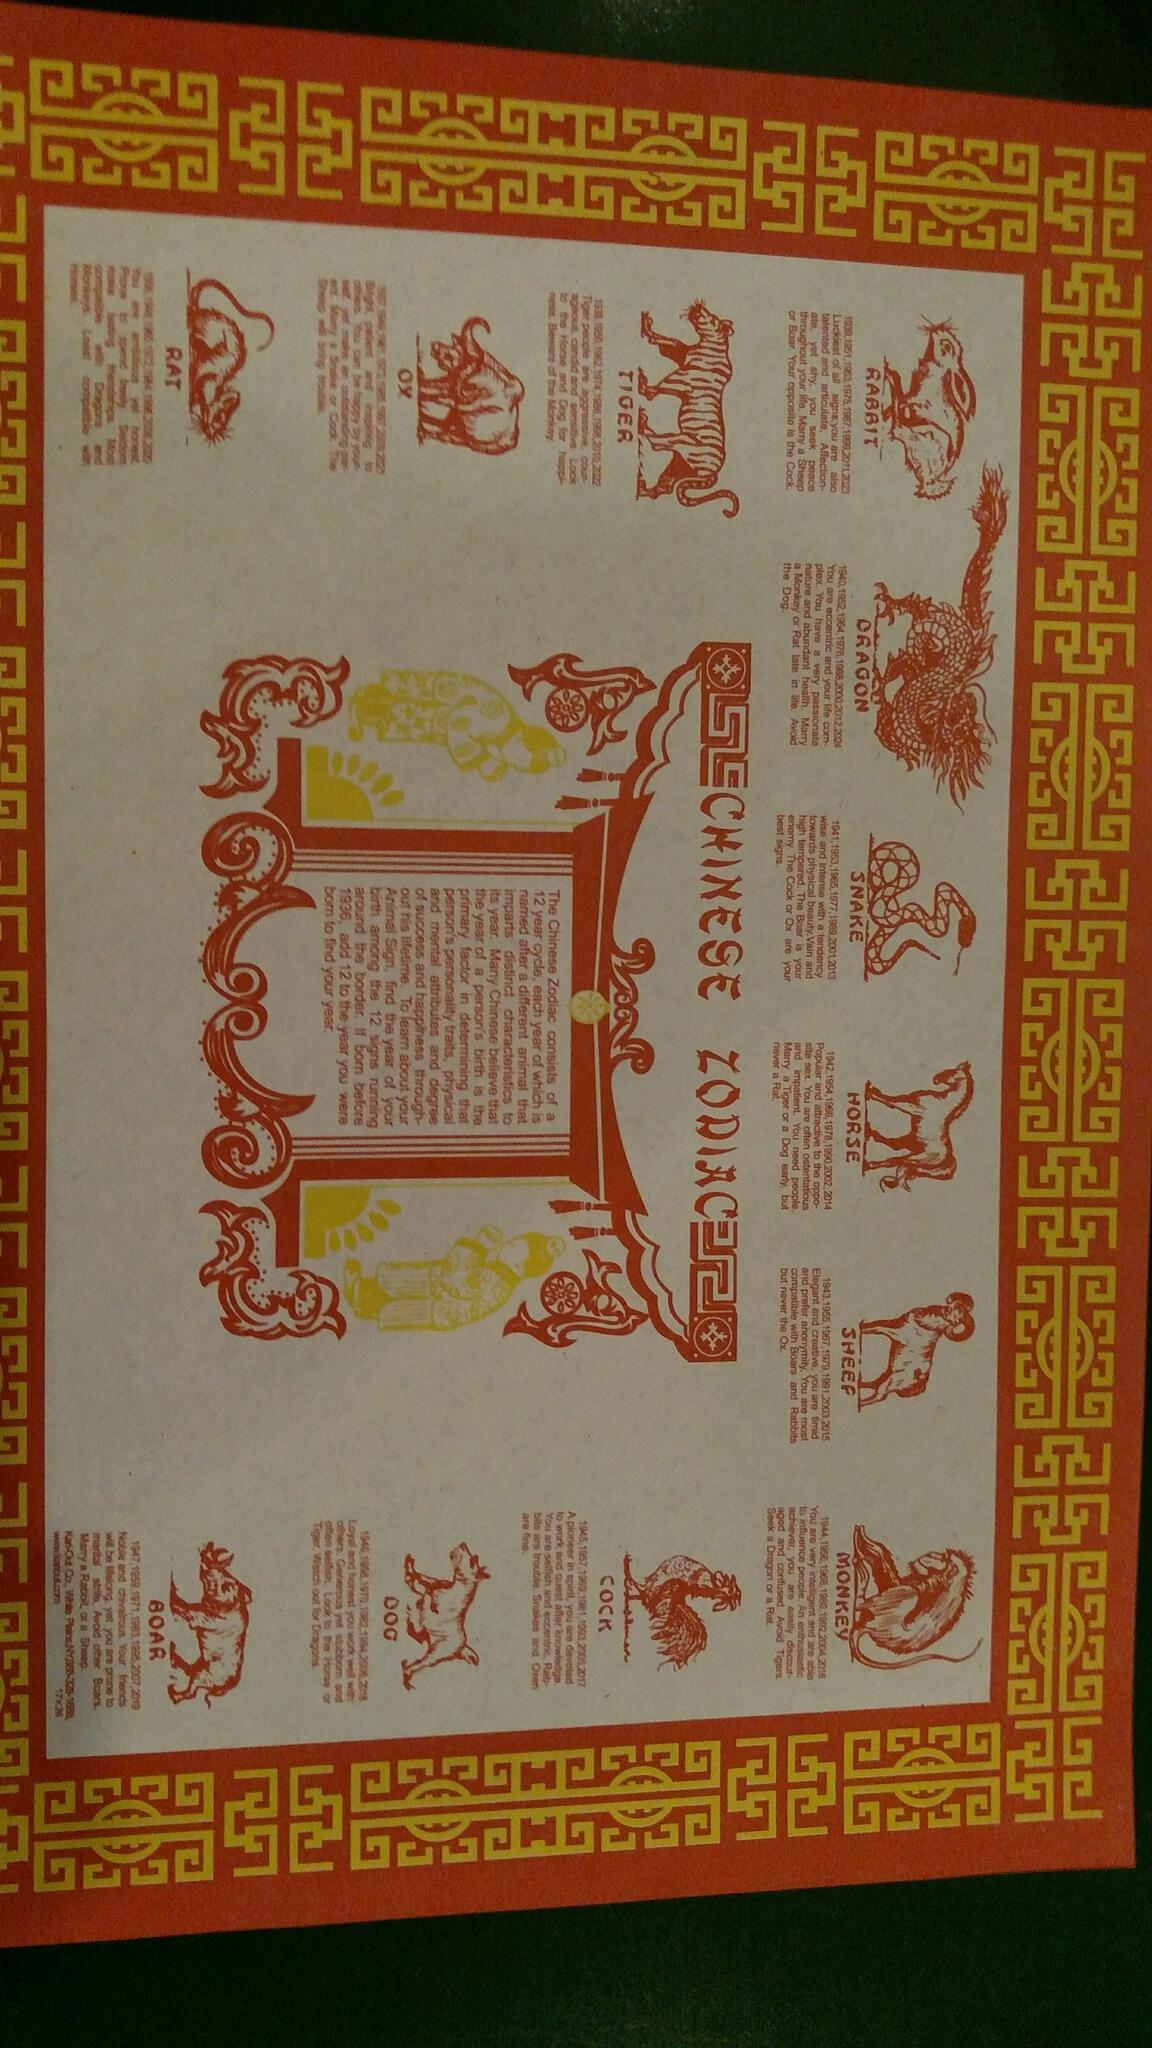 CHINESE ZODIAC
The Chinese Zodiac consists of a
12 year cycle, each year of which is
named after a different animal that
imparts distinct characteristics to
its year. Many Chinese believe that
the year of a person's birth is the
primary factor in determining that
person's personality traits, physical
and mental attributes and degree
of success and happiness through-
out his lifetime. To learn about your
Animal Sign, find the year of your
birth among the 12 signs running
around the border. If born before
1936, add 12 to the year you were
born to find your year.
RAT
1936,1948,1960,1972,1984,1996,2008,2020
You are ambitious yet honest.
Prone to spend freely. Seldom
make lasting friendships. Most
compatible with Dragons and
Monkeys. Least compatible with
Horses.
OX
1937,1949,1961,1973,1985,1997,2009,2021
Bright, patient and inspiring to
others. You can be happy by your-
self, yet make an outstanding par-
ent. Marry a Snake or Cock. The
Sheep will bring trouble.
TIGER
1938,1950,1962,1974,1986,1998,2010,2022
Tiger people are aggressive, cour-
ageous, candid and sensitive. Look
to the Horse and Dog for happi-
ness. Beware of the Monkey.
RABBIT
1939,1951,1963,1975,1987,1999,2011,2023
Luckiest of all signs, you are also
talented and articulate. Affection-
ate, yet shy, you seek peace
throughout your life. Marry a Sheep
or Boar. Your opposite is the Cock.
DRAGON
1940,1952,1964,1976,1988,2000,2012,2024
You are eccentric and your life com-
plex. You have a very passionate
nature and abundant health. Marry
a Monkey or Rat late in life. Avoid
the Dog.
SNAKE
1941,1953,1965,1977,1989,2001,2013
wise and intense with a tendency
towards physical beauty. Vain and
high tempered. The Boar is your
enemy. The Cock or Ox are your
best signs.
HORSE
1942,1954,1966,1978,1990,2002,2014
Popular and attractive to the oppo-
site sex. You are often ostentatious
and impatient. You need people.
Marry a Tiger or a Dog early, but
never a Rat.
SHEEP
1943,1955,1967,1979,1991,2003,2015
Elegant and creative, you are timid
and prefer anonymity. You are most
compatible with Boars and Rabbits
but never the Ox.
MONKEY
1944,1956,1968,1980,1992,2004,2016
You are very intelligent and are able
to influence people. An enthusiastic
achiever, you are easily discour-
aged and confused. Avoid Tigers.
Seek a Dragon or a Rat.
COCK
1945,1957,1969,1981,1993,2005,2017
A pioneer in spirit, you are devoted
to work and quest after knowledge.
You are selfish and eccentric. Rab-
bits are trouble. Snakes and Oxen
are fine.
DOG
1946,1958,1970,1982,1994,2006,2018
Loyal and honest you work well with
others. Generous yet stubborn and
often selfish. Look to the Horse or
Tiger. Watch out for Dragons.
BOAR
1947,1959,1971,1983,1995,2007,2019
Noble and chivalrous. Your friends
will be lifelong, yet you are prone to
marital strife. Avoid other Boars.
Marry a Rabbit or a Sheep.
Kari-Out Co., White Plains, NY
www.kariout.com